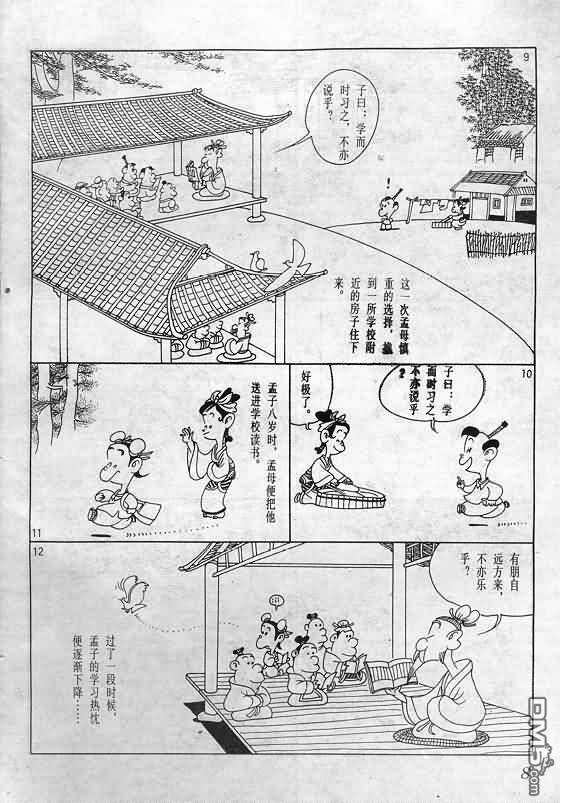 9
子曰：学而
时习之，不亦
说乎？
!
这一次孟母慎
重的选择，搬
到一所学校附
近的房子住下
来。
10
子曰：学
而时习之
不亦说乎
？
好极了。
11
孟子八岁时，孟母便把他
送进学校读书。
12
有朋自
远方来，
不亦乐
乎？
过了一段时候，
孟子的学习热忱
便逐渐下降……
8
DM5.com